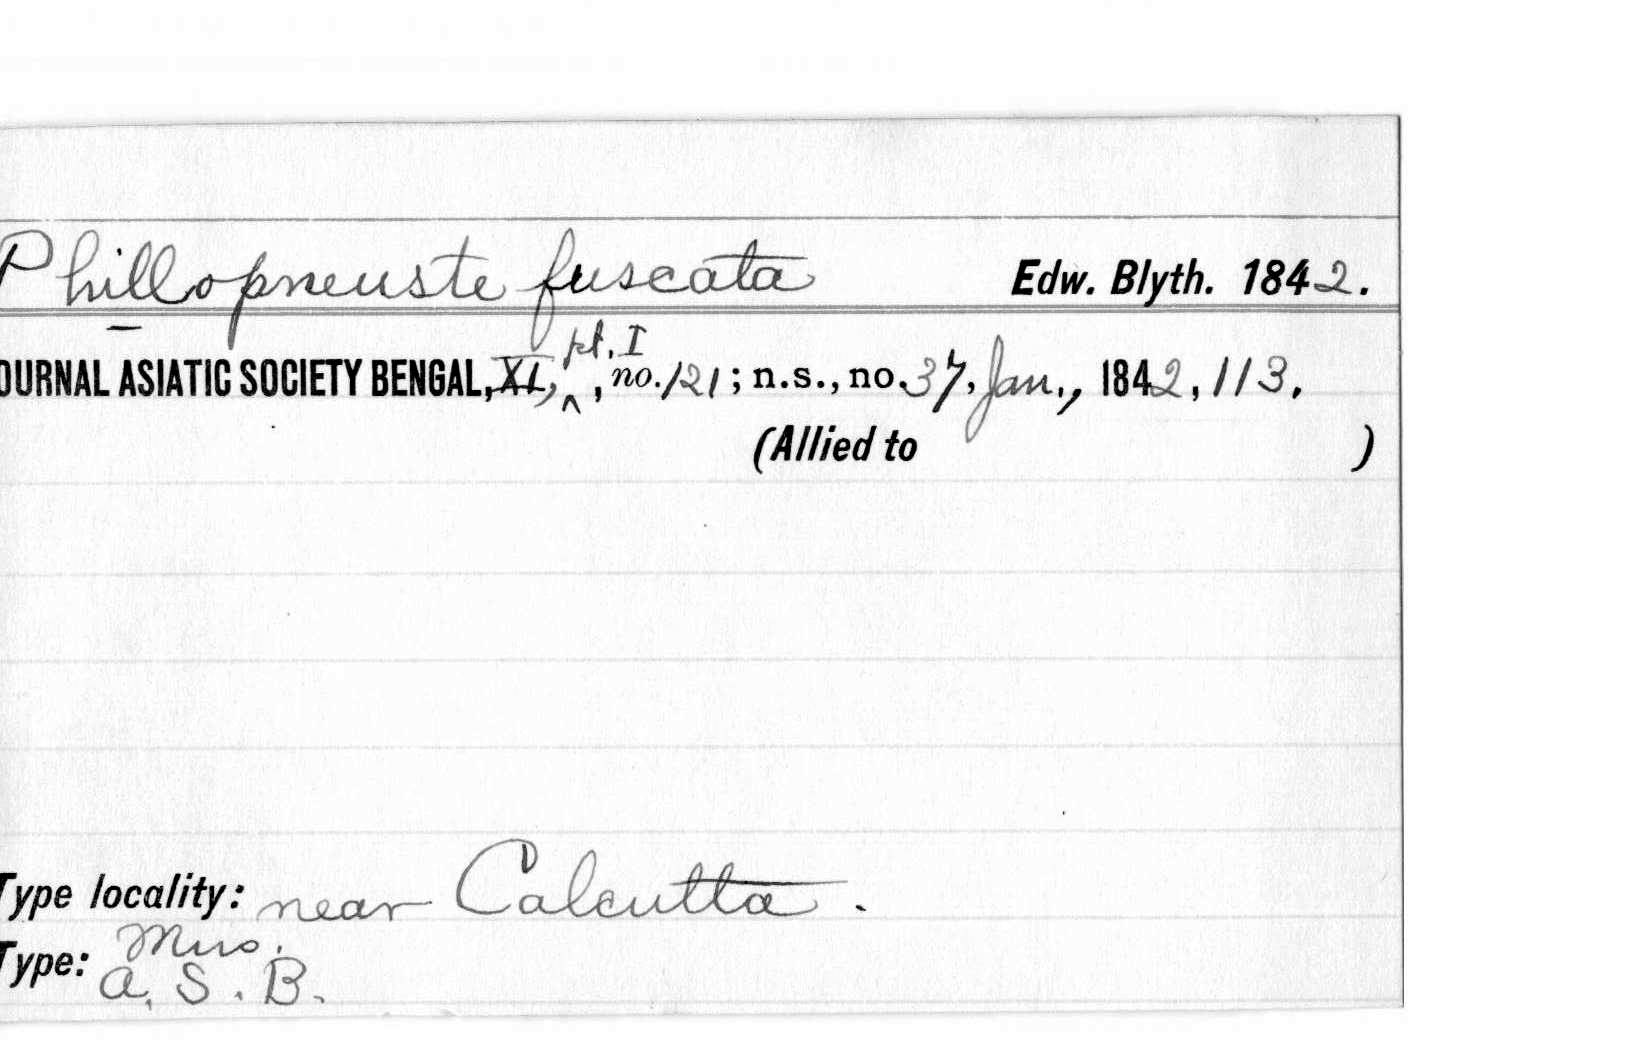 Phillopneuste fuscata Edw. Blyth. 1842.
OURNAL ASIATIC SOCIETY BENGAL, XI, pt. I, no. 121; n.s., no. 37, Jan., 1842, 113.
(Allied to )
Type locality: near Calcutta.
Type: Mus.
A. S. B.